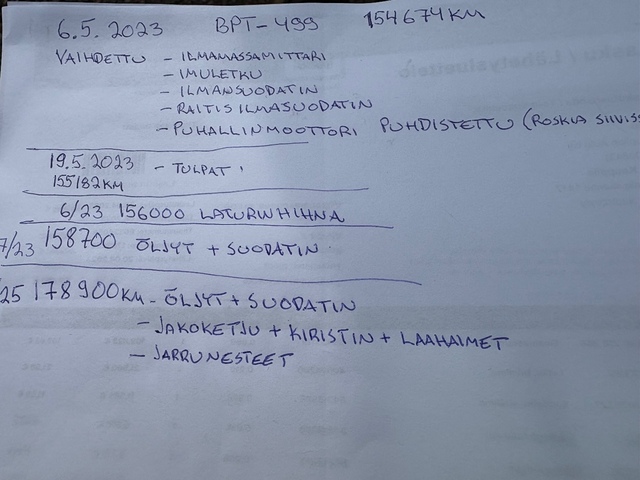 6.5.2023 BPT-499 154674KM
VAIHDETTU - ILMAMASSAMITTARI
- IMULETKU
- ILMANSUODATIN
- RAITISILMASUODATIN
- PUHALLINMOOTTORI PUHDISTETTU (ROSKIA SIIVISS
19.5.2023 - TULPAT
155182KM
6/23 156000 LATURINHIHNA
7/23 158700 ÖLJYT + SUODATIN
25 178900KM - ÖLJYT + SUODATIN
- JAKOKETJU + KIRISTIN + LAAHAIMET
- JARRUNESTEET